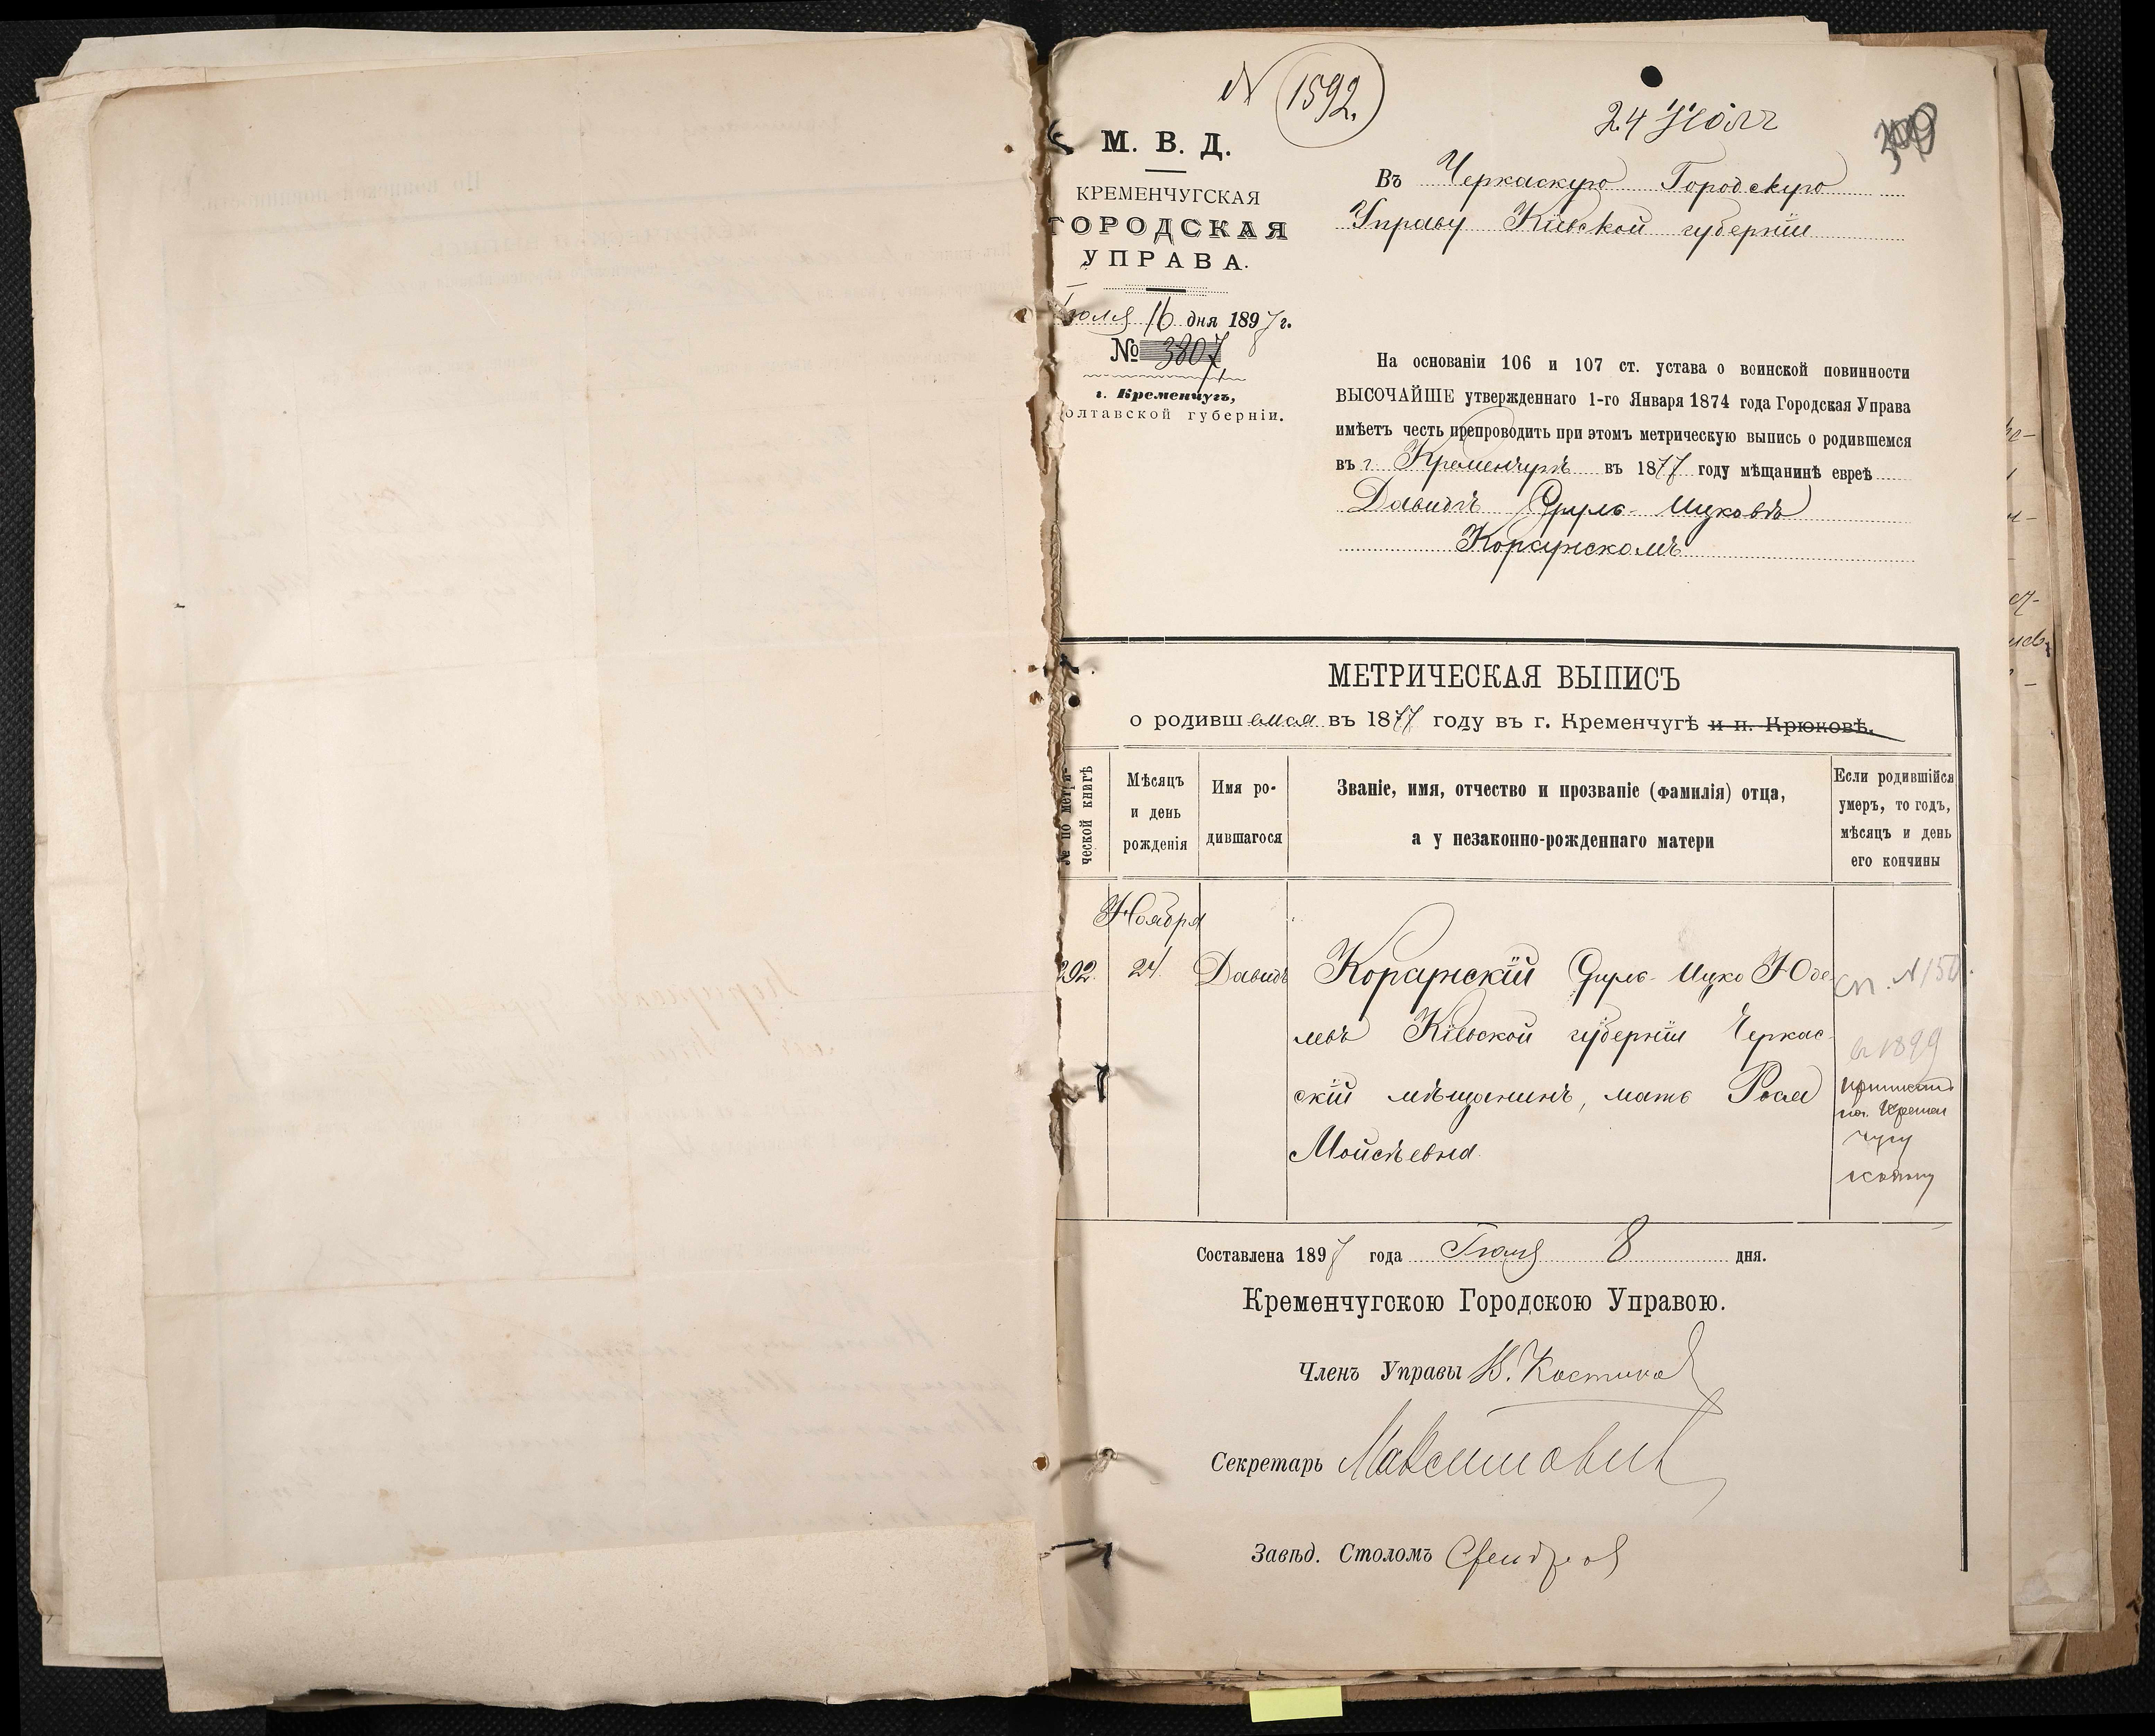 № 1592.
24 Июля
М. В. Д.
КРЕМЕНЧУГСКАЯ
ГОРОДСКАЯ
УПРАВА.
Іюля 16 дня 1897 г.
№ 3807
г. Кременчугъ,
олтавской губерніи.
Въ Черкаскую Городскую
Управу Кіевской губерніи
На основаніи 106 и 107 ст. устава о воинской повинности
ВЫСОЧАЙШЕ утвержденнаго 1-го Января 1874 года Городская Управа
имѣетъ честь препроводить при этомъ метрическую выпись о родившемся
въ г. Кременчугѣ въ 1877 году мѣщанинѣ евреѣ
Давидѣ Сруль-Ицковѣ
Корсунскомъ
МЕТРИЧЕСКАЯ ВЫПИСЬ
о родившемся въ 1877 году въ г. Кременчугѣ и п. Крюковѣ.
№ по метри-
ческой книгѣ
Мѣсяцъ
и день
рожденія
Имя ро-
дившагося
Званіе, имя, отчество и прозваніе (фамилія) отца,
а у незаконно-рожденнаго матери
Если родившійся
умеръ, то годъ,
мѣсяцъ и день
его кончины
Ноября
292. 24. Давидъ Корсунскій Сруль-Ицко Юде-
левъ Кіевской губерніи Черкас-
скій мѣщанинъ, мать Рося
Мойсѣевна
сп. №150
в 1899
по Кремен
чугу
Составлена 1897 года Іюля 8 дня.
Кременчугскою Городскою Управою.
Членъ Управы В. Костинов
Секретарь Максимович
Завѣд. Столомъ